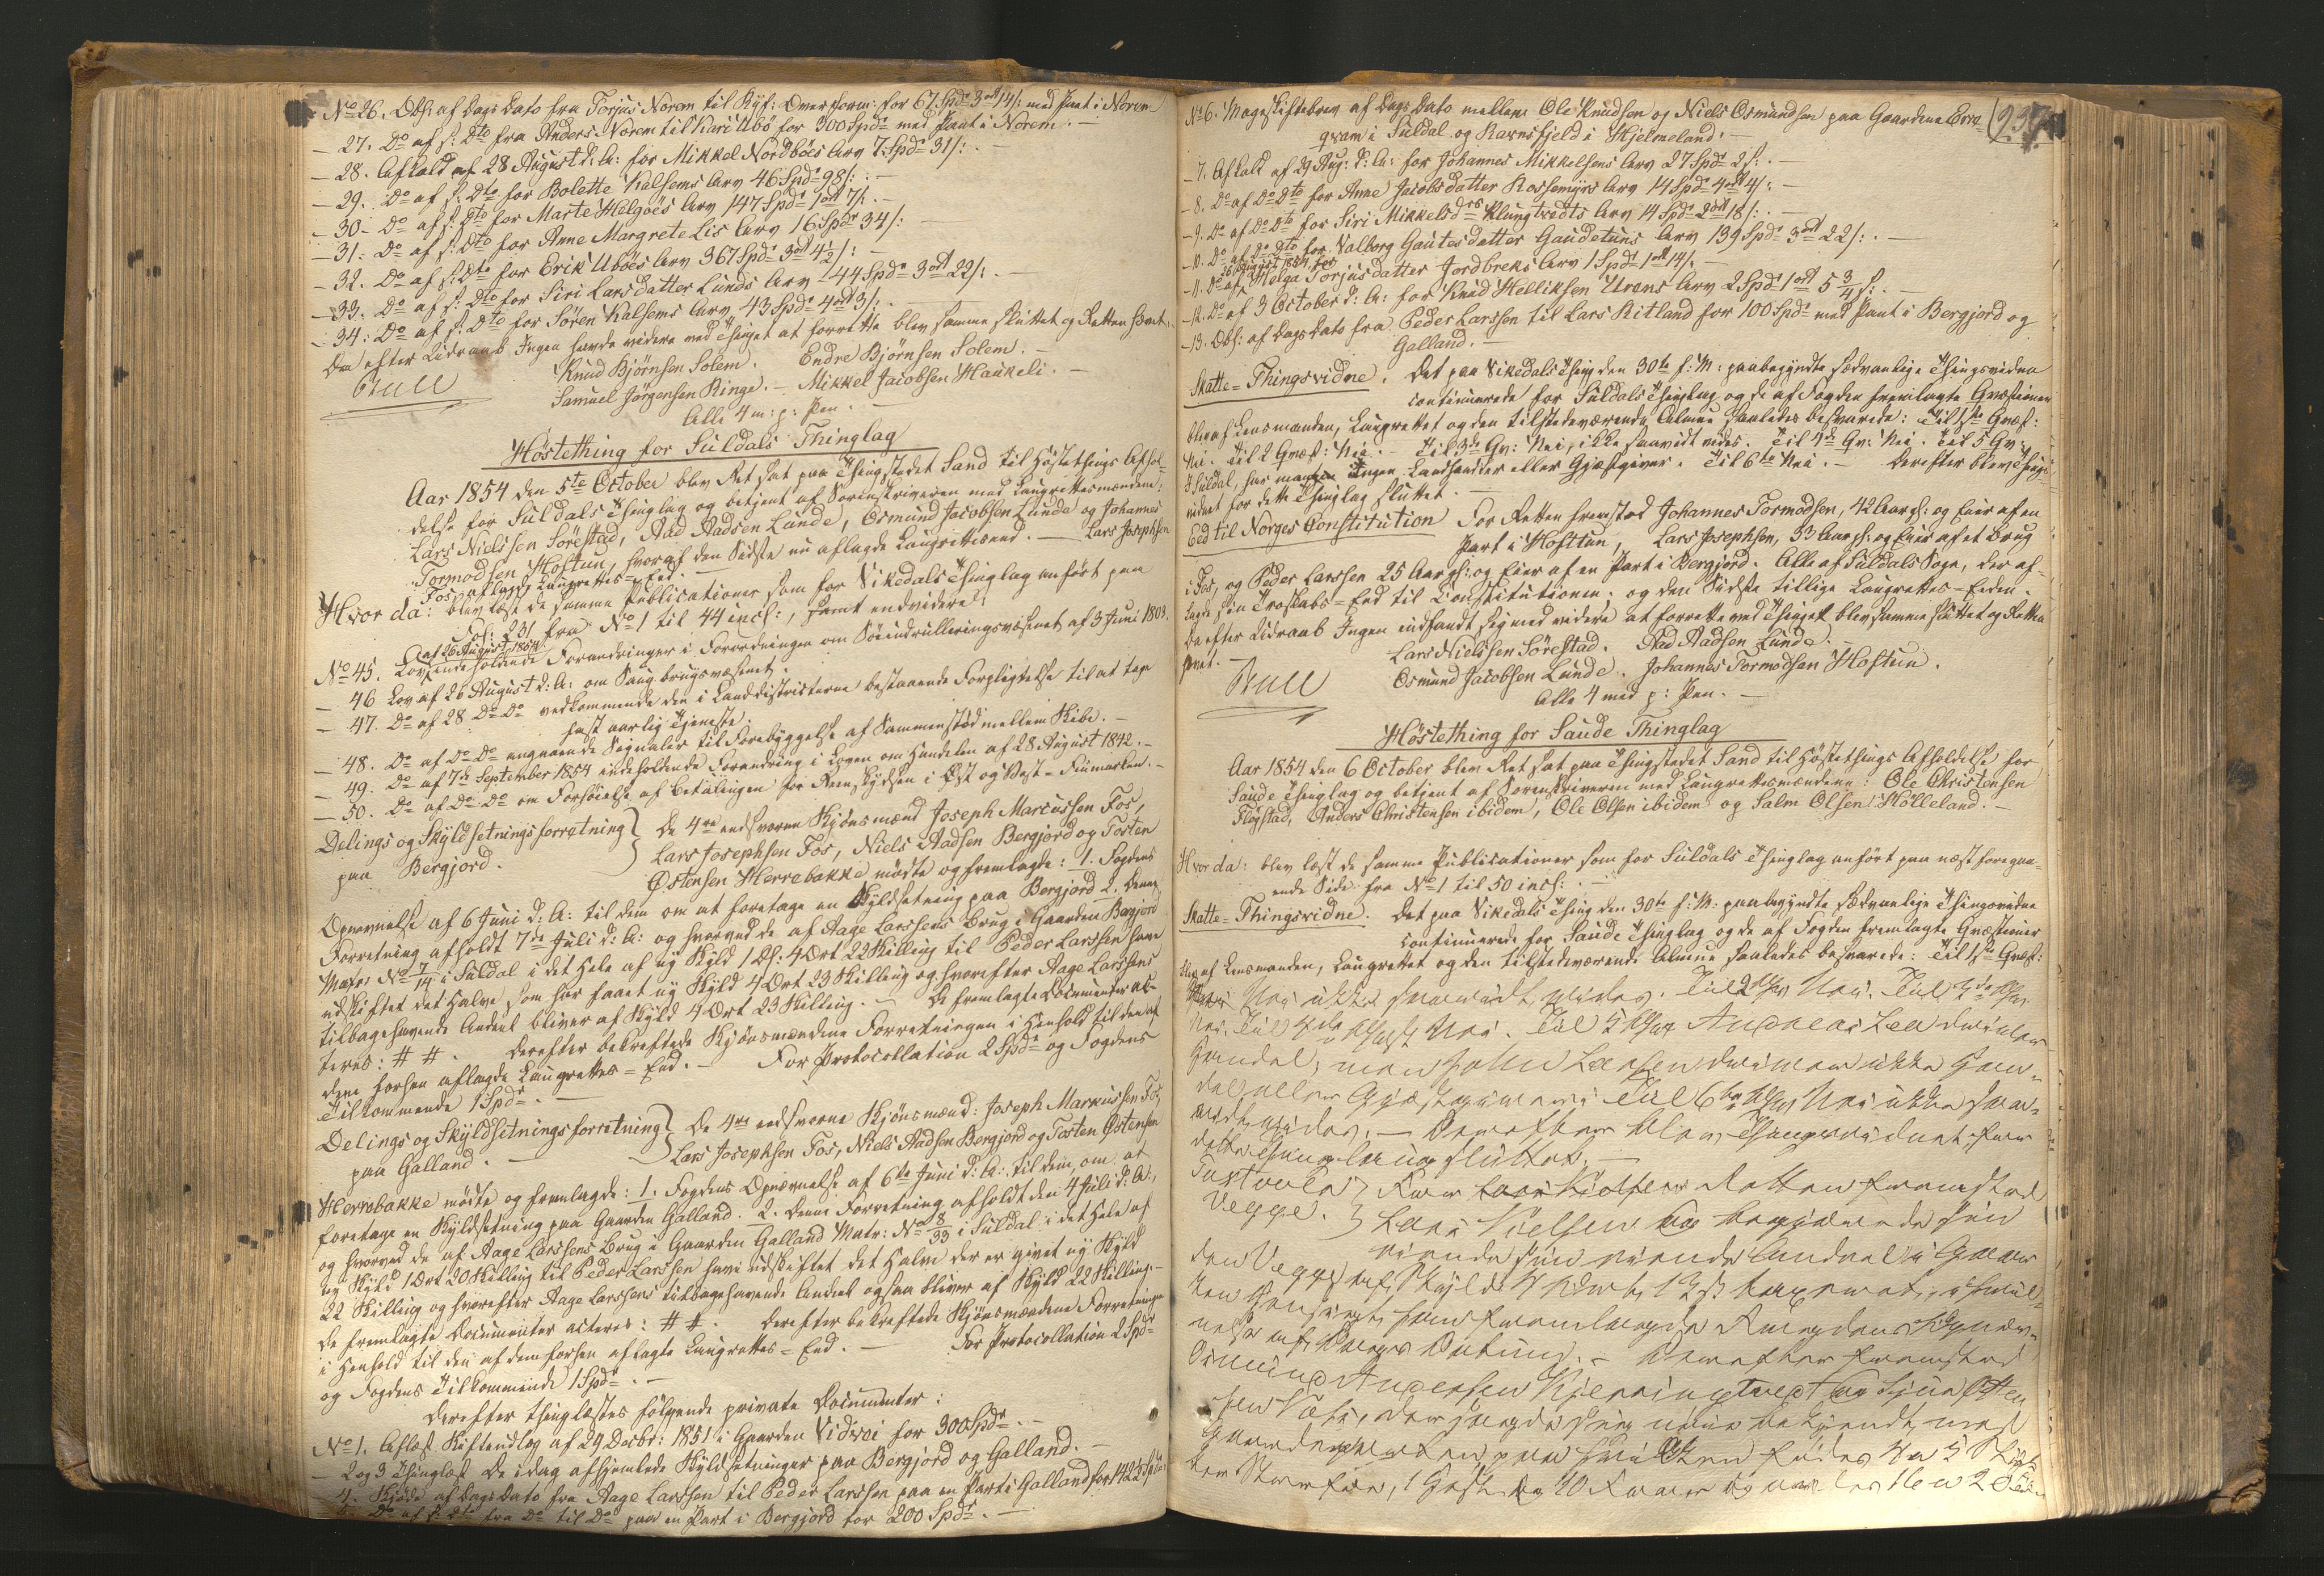 No 26. Obl: af Dags Dato fra Torjus Norem til Ryf: Overform: for 67 Spdr 3 ort 14 s: med Pant i Norem
- 27. Do af s: Dto fra Anders Norem til Kari Ubö for 300 Spdr med Pant i Norem. -
- 28. Afkald af 28 August d: A: for Mikkel Nordböes Arv 7 Spdr 31 s: -
- 29. Do af s: Dto for Bolette Kalsems Arv 46 Spdr 98 s: -
- 30 - Do af s: Dto for Marte Helgöes Arv 147 Spdr 1 ort 7 s. -
- 31. Do af s: Dto for Anne Margrete Lis Arv 16 Spdr 34 s: -
- 32. Do af s: Dto for Erik Uböes Arv 367 Spdr 3 ort 4 1/2 s: -
- 33. Do af s: Dto for Siri Larsdatter Lunds Arv 144 Spdr 3 ort 22 s: -
- 34: Do af s: Dto for Sören Kalsems Arv 43 Spdr 4 ort 3 s: -
Da efter Udraab Ingen havde videre ved Thinget at forrette blev samme sluttet og Retten hævet.
Knud Björnsen Solem. Endre Björnsen Solem. -
Samuel Jörgensen Ringe. - Mikkel Jacobsen Haukeli. -
Alle 4 m: p: Pen. -
Höstething for Suldals Thinglag
Aar 1854 den 5te October blev Ret sat paa Thingstedet Sand til Höstethings Afhol-
delse for Suldals Thinglag og betjent af Sorenskriveren med Laugrettesmændene:
Lars Nielssen Sörestad, Aad Aadsen Lunde, Osmund Jacobsen Lunde og Johannes
Tormodsen Hoftun, hvoraf den Sidste nu aflagde Laugretteseed. - Lars Josephsen
Fos, aflagde Laugrettes-Eed.
Hvor da: blev læst de samme Publicationer som for Vikedals Thinglag anfört paa
Fol: 231 fra No 1 til 44 incl:, samt endvidere:
af 26 August 1854
No 45. Lov indeholdende Forandringer i Forordningen om Söeindrulleringsvæsenet af 3 Juni 1803.
- 46 Lov af 26 August d: A: om Saugbrugsvæsenet.
- 47. Do af 28 Do Do vedkommende den i Landdistricterne bestaaende Forpligtelse til at tage
fast aarlig Tjeneste.
- 48. Do af Do Do angaaende Signaler til Forebyggelse af Sammenstöd mellem Skibe. -
- 49. Do af 7de September 1854 indeholdende Forandring i Loven om Handelen af 28 August 1842. -
- 50. Do af Do Do om Forhöielse af Betalingen for Reenskydsen i Öst og Vest-Finmarken. -
Delings og Skyldsetningsforretning } De 4re eedsvorne Skjönsmænd Joseph Marcussen Fos,
paa Bergjord. Lars Josephsen Fos, Niels Aadsen Bergjord og Torsten
Östensen Herrebakke mödte og fremlagde: 1. Fogdens
Opnævnelse af 6 Juni d: A: til dem om at foretage en Skyldsetning paa Bergjord 2. Denne
Forretning afholdt 7de Juli d: A: og hvorved de af Aage Larssens Brug i Gaarden Bergjord
Matr: No 7/14 i Suldal i det Hele af ny Skyld 1 Dl: 4 Ort 22 Skilling til Peder Larssen have
udskiftet det Halve som har faaet ny Skyld 4 Ort 23 Skilling og hvorefter Aage Larssens
tilbagehavende Andeel bliver af Skyld 4 Ort 23 Skilling. - De fremlagte Documenter ac-
teres: # #. Derefter bekræftede Skjönsmændene Forretningen i Henhold til den af
dem forhen aflagde Laugrettes-Eed. - For Protocollation 2 Spdr og Fogdens
Tilkommende 1 Spdr. -
Delings og Skyldsetningsforretning } De 4re eedsvorne Skjönsmænd: Joseph Markussen Fos,
paa Galland. - Lars Josephsen Fos, Niels Aadsen Bergjord og Torsten Östensen
Herrebakke mödte og fremlagde: 1. Fogdens Opnævnelse af 6te Juni d: A: til dem om at
foretage en Skyldsetning paa Gaarden Galland. 2. Denne Forretning afholdt den 4 Juli d: A:,
og hvorved de af Aage Larssens Brug i Gaarden Galland Matr: No 8/33 i Suldal i det Hele af
ny Skyld 1 Ort 20 Skilling til Peder Larssen have udskiftet det Halve der er givet ny Skyld
22 Skilling og hvorefter Aage Larssens tilbagehavende Andeel ogsaa bliver af Skyld 22 Skilling. -
De fremlagte Documenter acteres: # #. Derefter bekræftede Skjönsmændene Forretningen
i Henhold til den af dem forhen aflagte Laugrettes-Eed. - For Protocollation 2 Spdr
og Fogdens Tilkommende 1 Spdr. -
Derefter thinglæstes fölgende private Documenter:
No 1. Aflæst Skifteudlæg af 29 Decbr: 1851 i Gaarden Vidvei for 300 Spdr. -
- 2 og 3 Thinglæst De idag afhjemlede Skyldsetninger paa Bergjord og Galland. -
4. Skjöde af Dags Dato fra Aage Larssen til Peder Larssen paa en Part i Galland for
5. Do af s: Dto fra Do til Do paa en Part i Bergjord for 200 Spdr. -
237
No 6. Mageskiftebrev af Dags Dato mellem Ole Knudsen og Niels Osmundsen paa Gaardene Erre-
qvam i Suldal og Ravnsfjeld i Hjelmeland. -
- 7. Afkald af 29 Aug: d: A: for Johannes Mikkelsens Arv 27 Spdr 2 s: -
- 8. Do af Do Dto for Anne Jacobsdatter Rossemyrs Arv 14 Spdr 4 ort 4 s: -
- 9. Do af Do Dto for Siri Mikkelsdrs Klungtvedts Arv 14 Spdr 2 ort 18 s: -
- 10. Do af Do Dto for Valborg Gautesdatter Gaudetuns Arv 139 Spdr 3 ort 22 s: -
26 August 1854 for
- 11. Do af Helga Torjusdatter Jordbreks Arv 1 Spdr 1 ort 14 s. -
- 12. Do af 3 October d: A: for Knud Helliksen Urans Arv 2 Spdr 1 ort 5 3/4 s: -
- 13. Obl: af Dags Dato fra Peder Larssen til Lars Ritland for 100 Spdr med Pant i Bergjord og
Galland. -
Skatte-Thingsvidne. Det paa Vikedals Thing den 30te f: M: paabegyndte sædvanlige Thingsvidne
continuerede for Suldals Thinglag og de af Fogden fremlagte Qvæstioner
blev af Lensmanden, Laugrettet og den tilstedeværende Almue saaledes besvarede: Til 1ste Qvæst:
Nei. Til 2 Qvæst: Nei. - Til 3de Qv: Nei, ikke saavidt vides. Til 4de Qv: Nei. Til 5 Qv:
I Suldal, har Ingen Landhandler eller Gjæstgiver. Til 6te Nei. - Derefter blev Things-
vidnet for dette Thinglag sluttet. -
Eed til Norges Constitution For Retten fremstod Johannes Tormodsen, 42 Aar gl: og Eier af en
Part i Hoftun, Lars Josephsen, 33 Aar gl: og Eier af et Brug
i Fos, og Peder Larssen 25 Aar gl: og Eier af en Part i Bergjord. Alle af Suldals Sogn, der af-
lagde sin Troskabs-Eed til Constitutionen. og den Sidste tillige Laugrettes-Eeden. -
Da efter Udraab Ingen indfandt sig med videre at forrette ved Thinget blev samme sluttet og Retten
hævet. Lars Nielssen Sörestad. Aad Aadsen Lunde. -
Osmund Jacobsen Lunde. Johannes Tormodsen Hoftun.
Alle 4 med p: Pen. -
Höstething for Saude Thinglag
Aar 1854 den 6 October blev Ret sat paa Thingstedet Sand til Höstethings Afholdelse for
Saude Thinglag og betjent af Sorenskriveren med Laugrettesmændene: Ole Christensen
Flöystad, Anders Christensen ibidem, Ole Olsen ibidem og Salm Olsen Hölleland. -
Hvor da: blev læst de samme Publicationer som for Suldals Thinglag anfört paa næst foregaa-
ende Side fra No 1 til 50 incl: -
Skatte-Thingsvidne. Det paa Vikedals Thing den 30te f: M: paabegyndte sædvanlige Thingsvidne
continuerede for Saude Thinglag og de af Fogden fremlagte Qvæstioner
blev af Lensmanden, Laugrettet og den tilstedeværende Almue saaledes besvarede: Til 1ste Qvæst:
Nei ikke saavidt vides. Til 2 Qvæ Nei. Til 3de Qvæ
Nei. Til 4de Qvæst Nei. Til 5 Qvæ Andreas Lea driver
Handel, men John Larsen driver ikke Han-
del eller Gjæstgiveri Til 6te Qvæ Nei ikke saa-
vidt vides. - Derefter blev Thingsvidnet for
dette Thinglaug sluttet. -
Vegge. } For Retten fremstod
Lars Nielsen og begjærede sin
eiende Andeel i Gaar-
den Vegge af Skyld 4 Ort 13 s taxeret, i hvil-
ken Henseende han fremlagde Fogdens Opnæv-
nelse af Dags Datum. - Derefter fremstod
Osmund Andersen Kjerringtvedt og Sjur Osten-
sen der sagde sig nöie bekjendt med
Gaardparten, paa hvilken födes 4 a 5
1 Hest og 10 Faar og avles